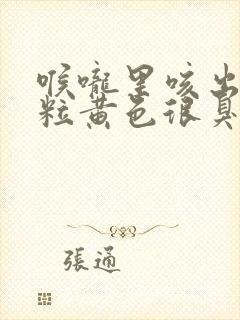 喉嚨里咳出
粒黃色很臭
張通